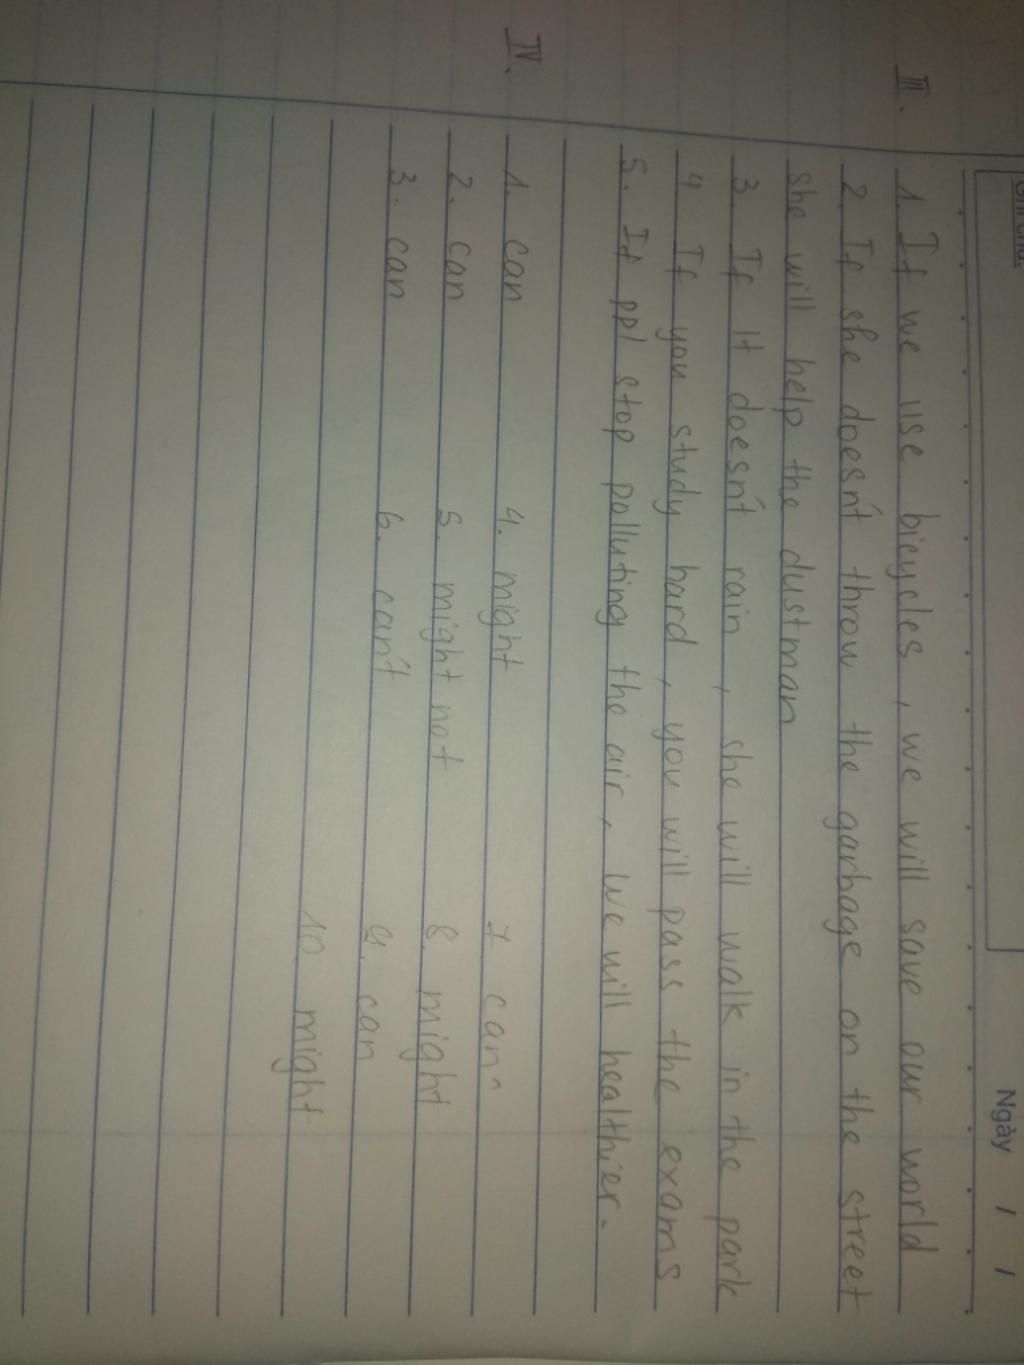 Ghi chú:
Ngày / /
III.
1. If we use bicycles, we will save our world
2. If she doesn't throw the garbage on the street
she will help the dustman
3. If it doesn't rain, she will walk in the park
4 If you study hard, you will pass the exams
5. If ppl stop polluting the air, we will healthier.
IV.
1. can 4. might 7 can
2. can 5. might not 8 might
3. can 6. can't 9. can
10 might